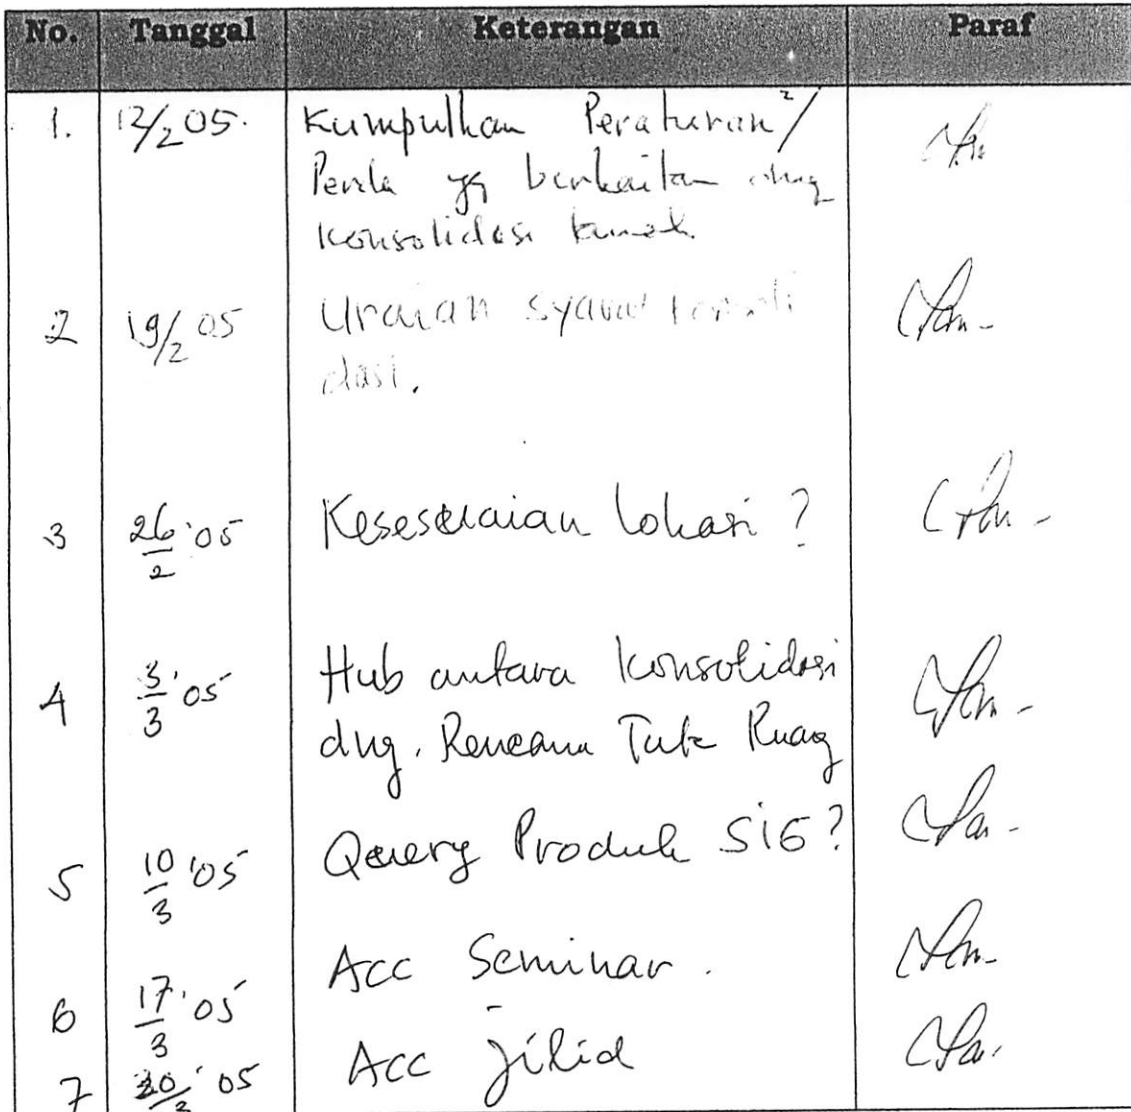 No. Tanggal Keterangan Paraf
1. 12/2 05. Kumpulkan Peraturan²/
Perda yg berkaitan dng
konsolidasi tanah.
2 19/2 05 Uraian syarat konsoli
dasi.
3 26/2 '05 Kesesuaian lokasi ?
4 3/3 '05 Hub antara konsolidasi
dng. Rencana Tata Ruang
5 10/3 '05 Query Produk SIG ?
6 17/3 '05 Acc Seminar.
7 /3 '05 Acc jilid